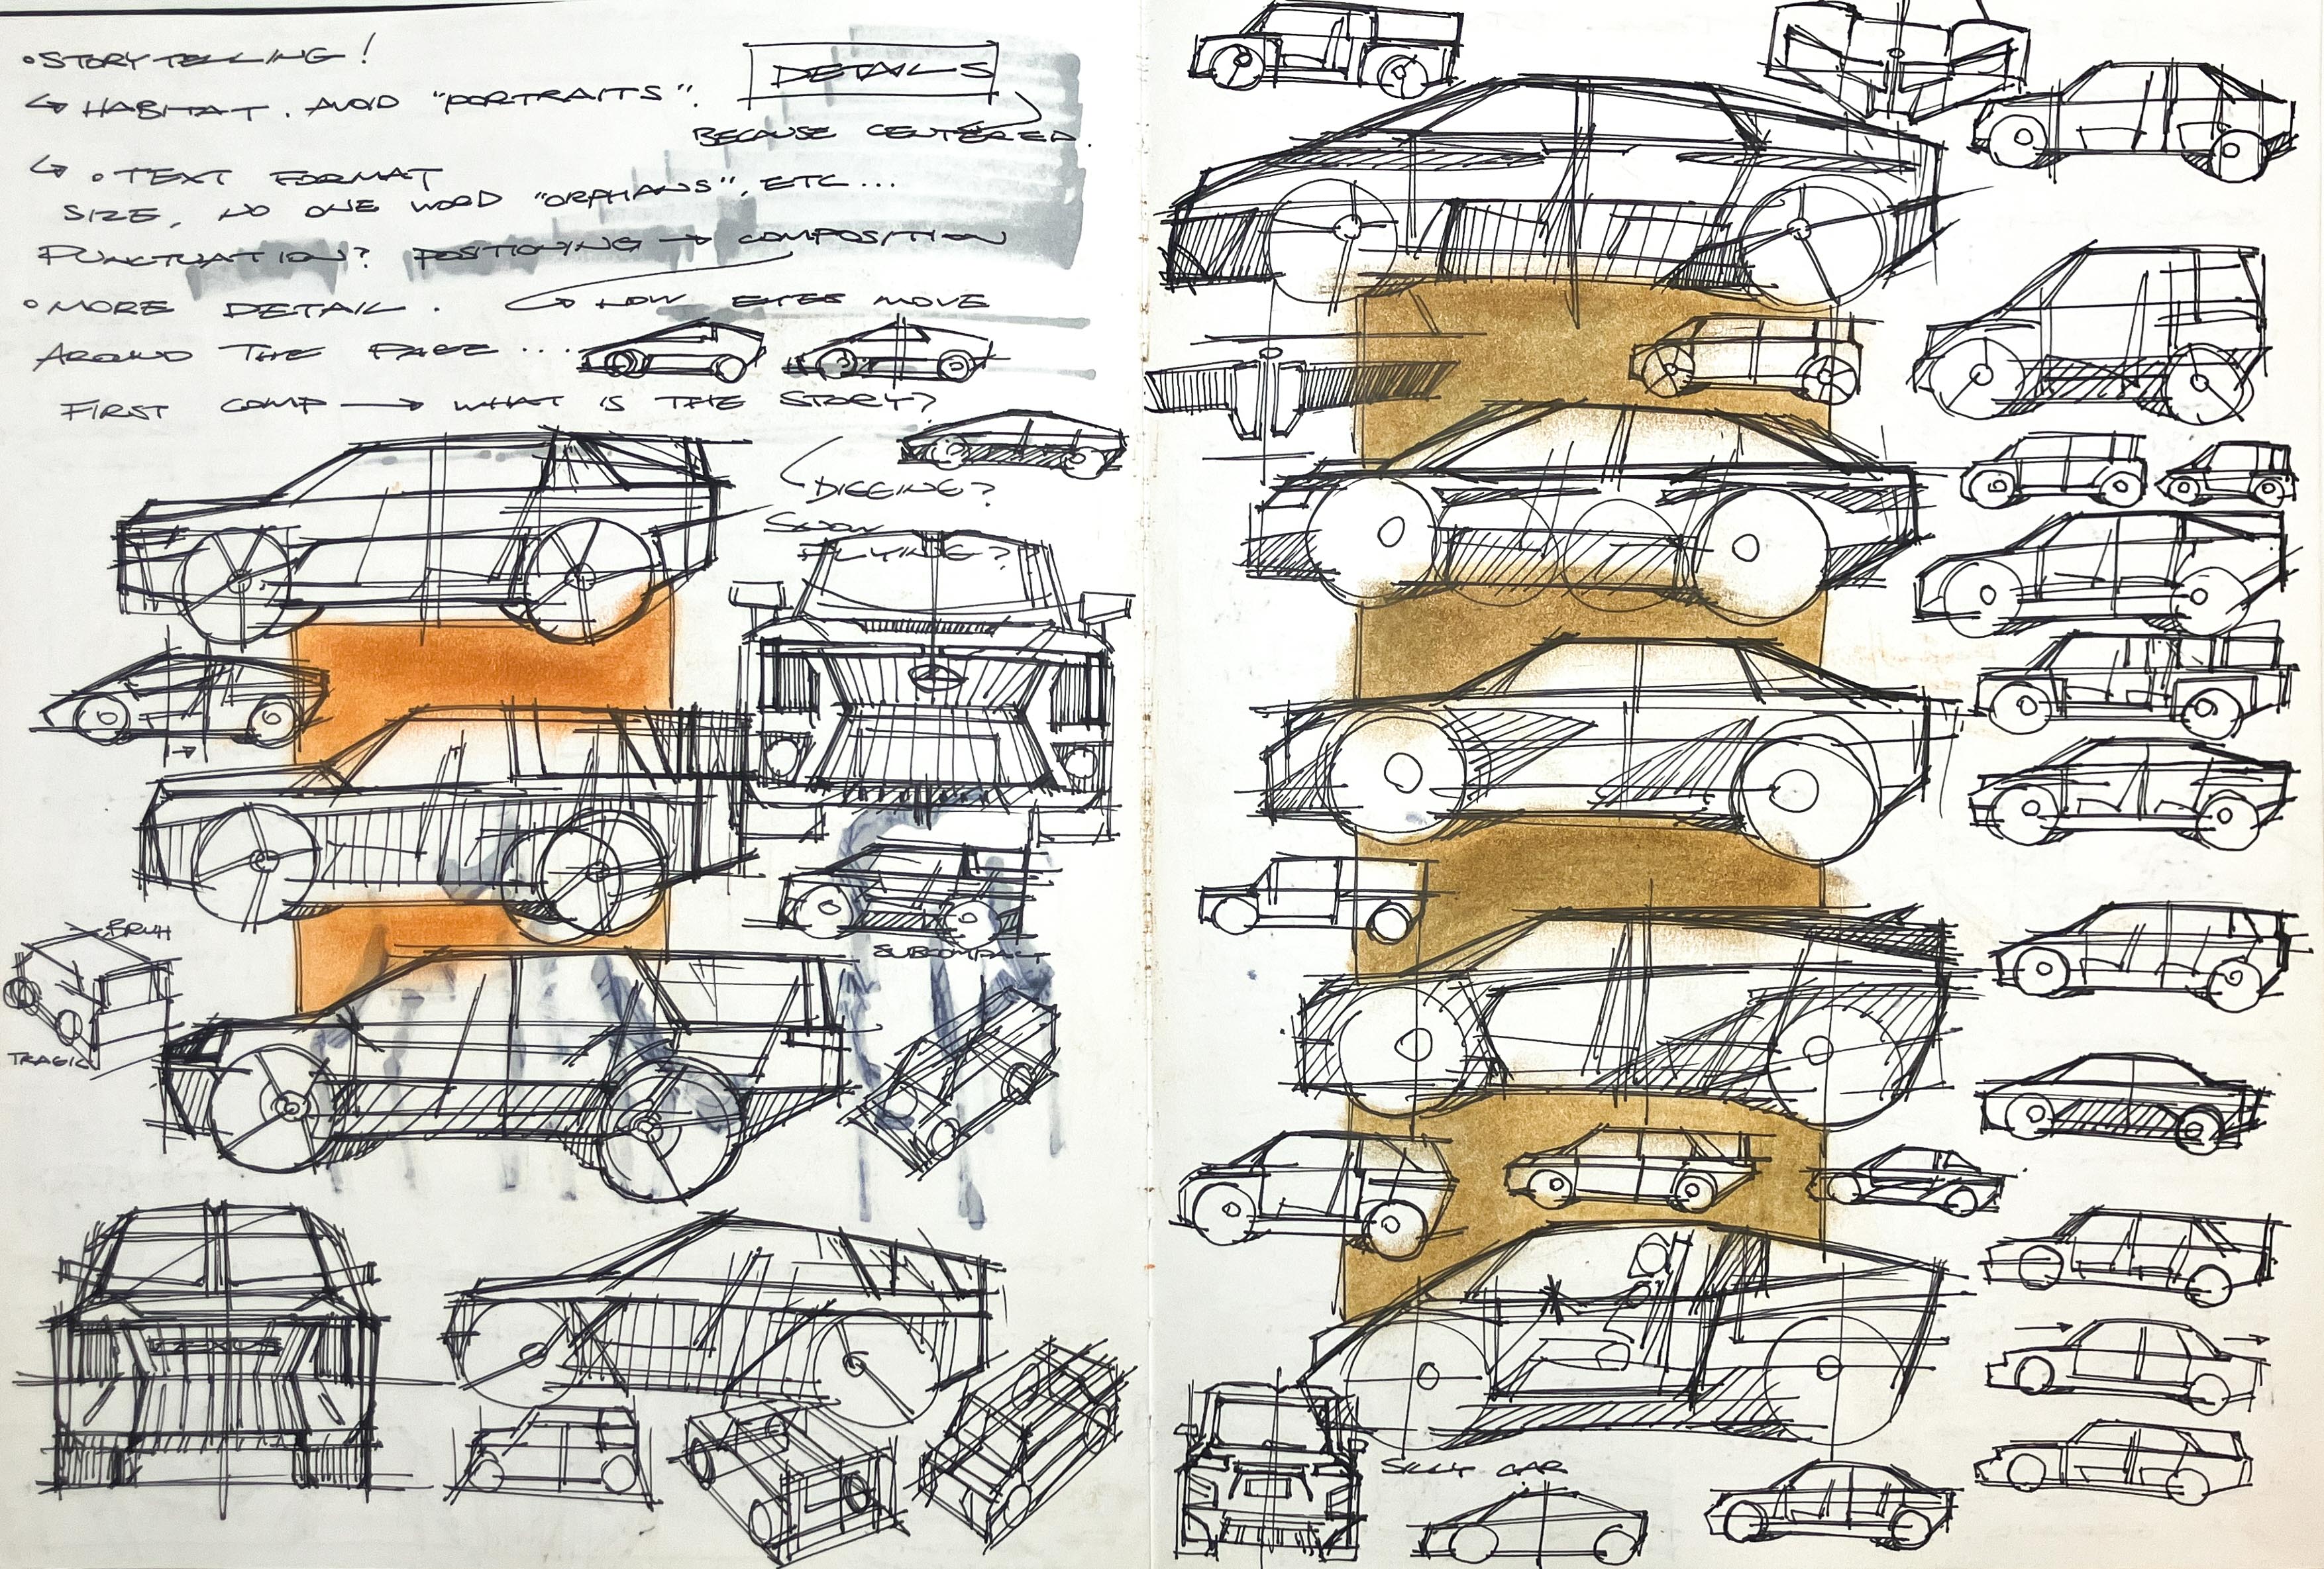 •STORYTELLING!
↳ HABITAT. AVOID "PORTRAITS".
DETAILS
BECAUSE CENTERED.
↳ •TEXT FORMAT
SIZE, NO ONE WORD "ORPHANS", ETC...
PUNCTUATION? POSITIONING → COMPOSITION
•MORE DETAIL. ↳ HOW EYES MOVE
AROUND THE PAGE...
FIRST COMP → WHAT IS THE STORY?
DIGGING?
SNOW
FLYING?
BRUH
TRAGIC
SUBCOMPACT
LEXUS
SILLY CAR